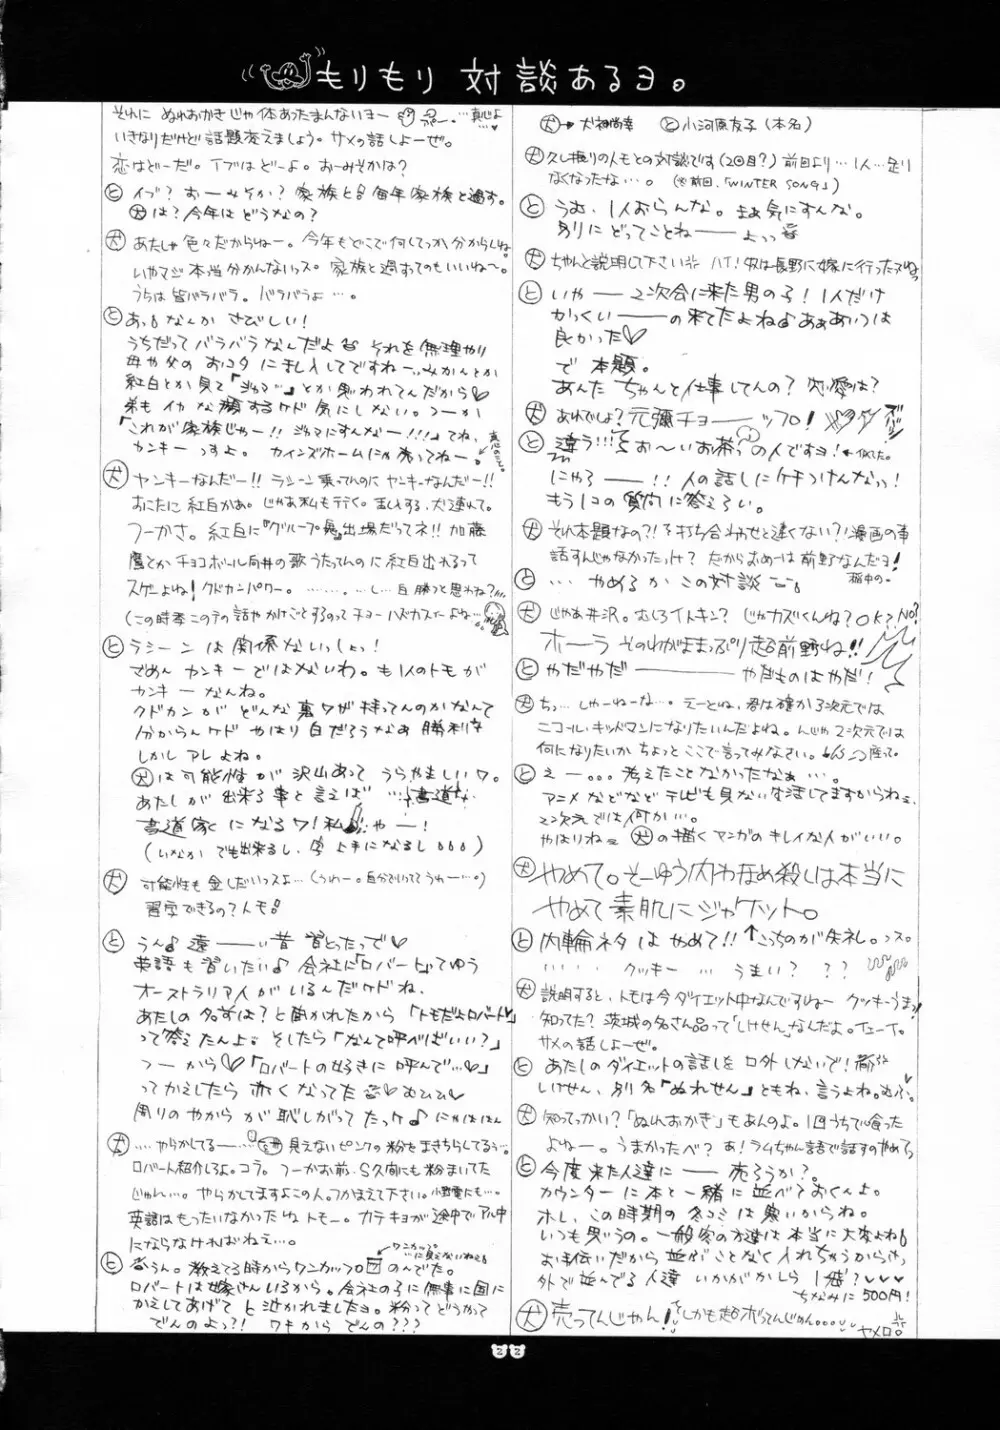 もりもり 対談あるヨ。
犬→犬神尚幸 と→小河原友子(本名)
犬 久し振りの人もとの対談です(2回目?)前回より…1人…足り
なくなったな…。(※前回、「WINTER SONG」)
と うむ、1人おらんな。まぁ気にすんな。
別にどってことねーーよっっ
犬 ちゃんと説明して下さい ハイ!奴は長野に嫁に行ったスねっ
と いやー2次会に来た男の子!1人だけ
かっくいーーの来てたよね♪あぁあいつは
良かった♡
で 本題。
あんた ちゃんと仕事してんの?恋愛は?
犬 あれでしょ?元彌チョーーップ!
と 違う!!! お〜いお茶っの人ですヨ!
にゃろーー!!人の話しにケチつけんなっ!
もう1コの質問に答えろい。
犬 それ本題なの?!打ち合わせと違くない?!漫画の事
話すんじゃなかったっけ?だからおめーは前野なんだヨ!
と …やめるかこの対談
犬 じゃあ井沢。むしろイトキン?じゃカズくんね?OK?NO?
ホーラそのわがままっぷり超前野ね!!
と やだやだーーーやだものはやだ!
犬 ちっ…しゃーねーな…。えーとね、君は確か3次元では
ニコール・キッドマンになりたいんだよね。んじゃ2次元では
何になりたいかちょっとここで言ってみなさい。
と えー。。。考えたことなかったなぁ…。
アニメなどなどテレビも見ない生活してますからね
2次元では何か…。
やはりね 犬の描くマンガのキレイな人がいい。
犬 やめて。そーゆう内わなめ殺しは本当に
やめて素肌にジャケット。
と 内輪ネタはやめて!!↑こっちのが失礼。っス。
……クッキー…うまい???
犬 説明すると、トモは今ダイエット中なんですねー クッキーうまっ!
知ってた?茨城の名さん品って「しけせん」なんだよ。てューて。
サメの話しよーぜ。
と あたしのダイエットの話しを口外しないで!
しけせん、別名「ぬれせん」ともね、言うよね。むふ。
犬 知ってっかい?「ぬれおかき」もあんのよ。1回うちで食った
よねー。うまかったべ?あ!ラムちゃん語で話すのやめて
と 今度来た人達にー売ろうか?。
カウンターに本と一緒に並べておくんよ。
ホレ、この時期の冬コミは寒いからね。
いつも思うの。一般客の方達は本当に大変よね
お手伝いだから並ぶことなく入れちゃうからさっ
外で並んでる人達いかがかしら 1枚?♡♡♡
ちなみに500円!
犬 売ってんじゃん!しかも超ボってんじゃん。。。
ヤメロ。
それにぬれおかきじゃ体あったまんないヨー …真しよ
いきなりだけど話題変えましょう。サメの話しよーぜ。
恋はどーだ。イブはどーよ。おーみそかは?
と イブ?おーみそか?家族と毎年家族と過す。
犬は?今年はどうなの?
犬 あたしゃ色々だからねー。今年もどこで何してっか分からしね
いやマジ本当分かんないっス。家族と過すってのもいいね〜。
うちは皆バラバラ。バラバラよ…。
と あっ なんかさびしい!
うちだってバラバラなんだよ それを無理やり
母や父のおコタにましんしてですねー…みかんとか
紅白とか見て「ジャマ…」とか思われてんだから♡
弟もイカな顔するケド気にしない。つーか
「これが家族じゃー!!ジャマにすんなー!!!」てね。
カンキーっすよ。カインズホームにゃ売ってねー。
犬 ヤンキーなんだー!!ラシーン乗ってんのにヤンキーなんだー!!
おこたに紅白かぁ。じゃあ私も行く。ましんする、犬連れて。
つーかさ。紅白に『グループ魂』出場だってネ!!加藤
鷹とかチョコボール向井の歌うたってんのに紅白出れるって
スゲーよね!クドカンパワー。………し…白勝つと思わね?
(この時季このテの話やかけことするのってチョーハズカスィーよね…
と ラシーンは関係ないっしょっ!
ざめんカンキーではないわ。も1人のトモが
カンキーなんね。
クドカンがどんな裏ワザ持ってんのかなんて
分からんケドやはり白だろうなぁ勝利は
しかしアレよね。
犬は可能性が沢山あってうらやましいワ。
あたしが出来る事と言えば…書道
書道家くになるワ!私ゃー!
(いなかでも出来るし、字上手になるし。。。)
犬 可能性も金しだいっスよ…(うわー。自分でいっててうわー…。)
習字できるの?人も
と うん♪遠ーーい昔習とったで♡
英語も習いたい♪会社に「ロバート」てゆう
オーストラリア人がいるんだケドね、
あたしの名前は?と聞かれたから「トモだよロバート♡」
って答えたんよ。そしたら「なんて呼べばいい?」
つーから♡「ロバートの好きに呼んで…♡」
ってかえしたら赤くなってた むひひ♥
周りのやからが恥しがってたっケ♪にゃはははん
犬 …やらかしてるー…見えないピンクの粉をまきちらしてるぅ…。
ロバート紹介しろよ。コラ。つーかお前、S久間にも粉まいてた
じゃん…。やらかしてますよこの人。つかまえて下さい。小野電にも…。
英語はもったいなかったねトモー。カテキョが途中でアル中
にならなければねぇ…。
ワンカップ。…に見えないねぇ
と そうん。教えてる時からワンカップのんでた。
ロバートは嫁さんいるから。会社の子に無事に国に
かえしてあげてと泣かれましたヨ。粉ってどうかって
でんのよっ?!ワキからでんの???
22